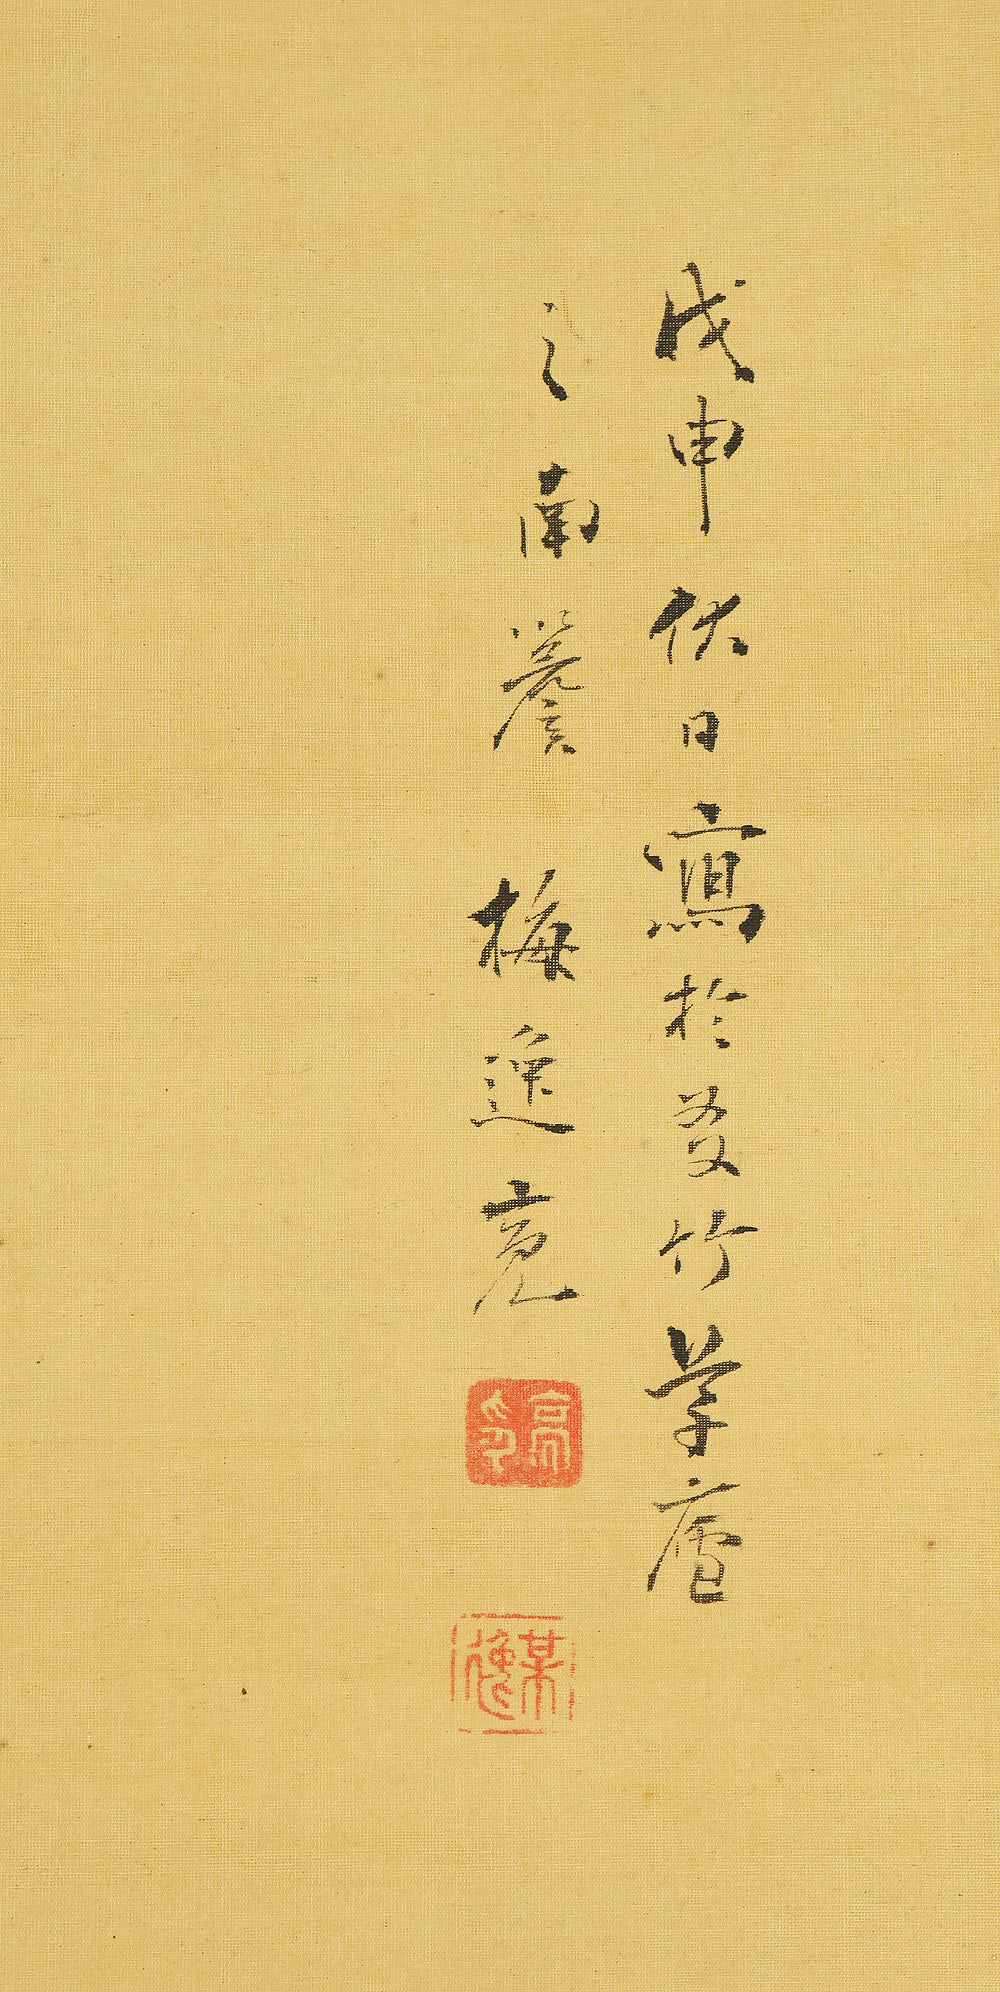 戊申伏日寫於愛竹草廬
之南簷 梅逸亮
亮印
某逸